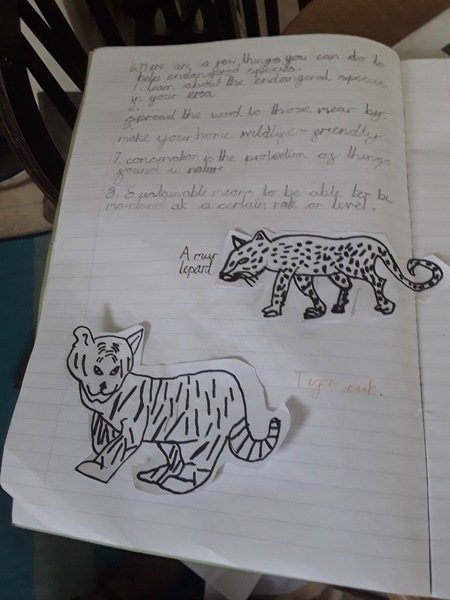 6. Here are a few things you can do to
help endangered species.
1. Learn about the endangered species
in your area
2.
spread the word to those near by.
make your home wildlife-friendly
7. conservation is the protection of things
found in nature
8. Sustainable means to be able to be
maintained at a certain rate or level.
Amur
lepard
Tiger cub.